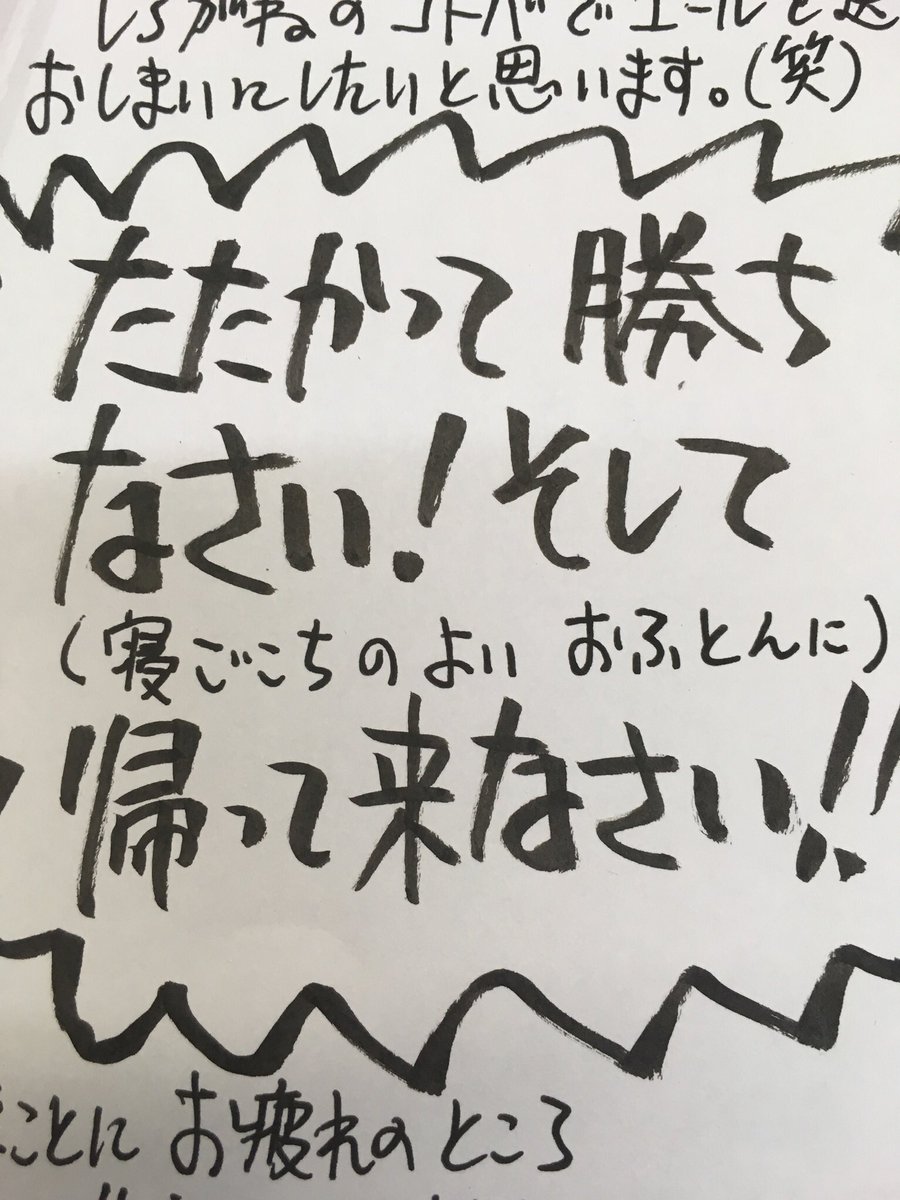 しらがねのコトバでエールを送
おしまいにしたいと思います。(笑)
たたかって 勝ち
なさい! そして
(寝ごこちのよい おふとんに)
帰って来なさい!!
ことに お疲れのところ